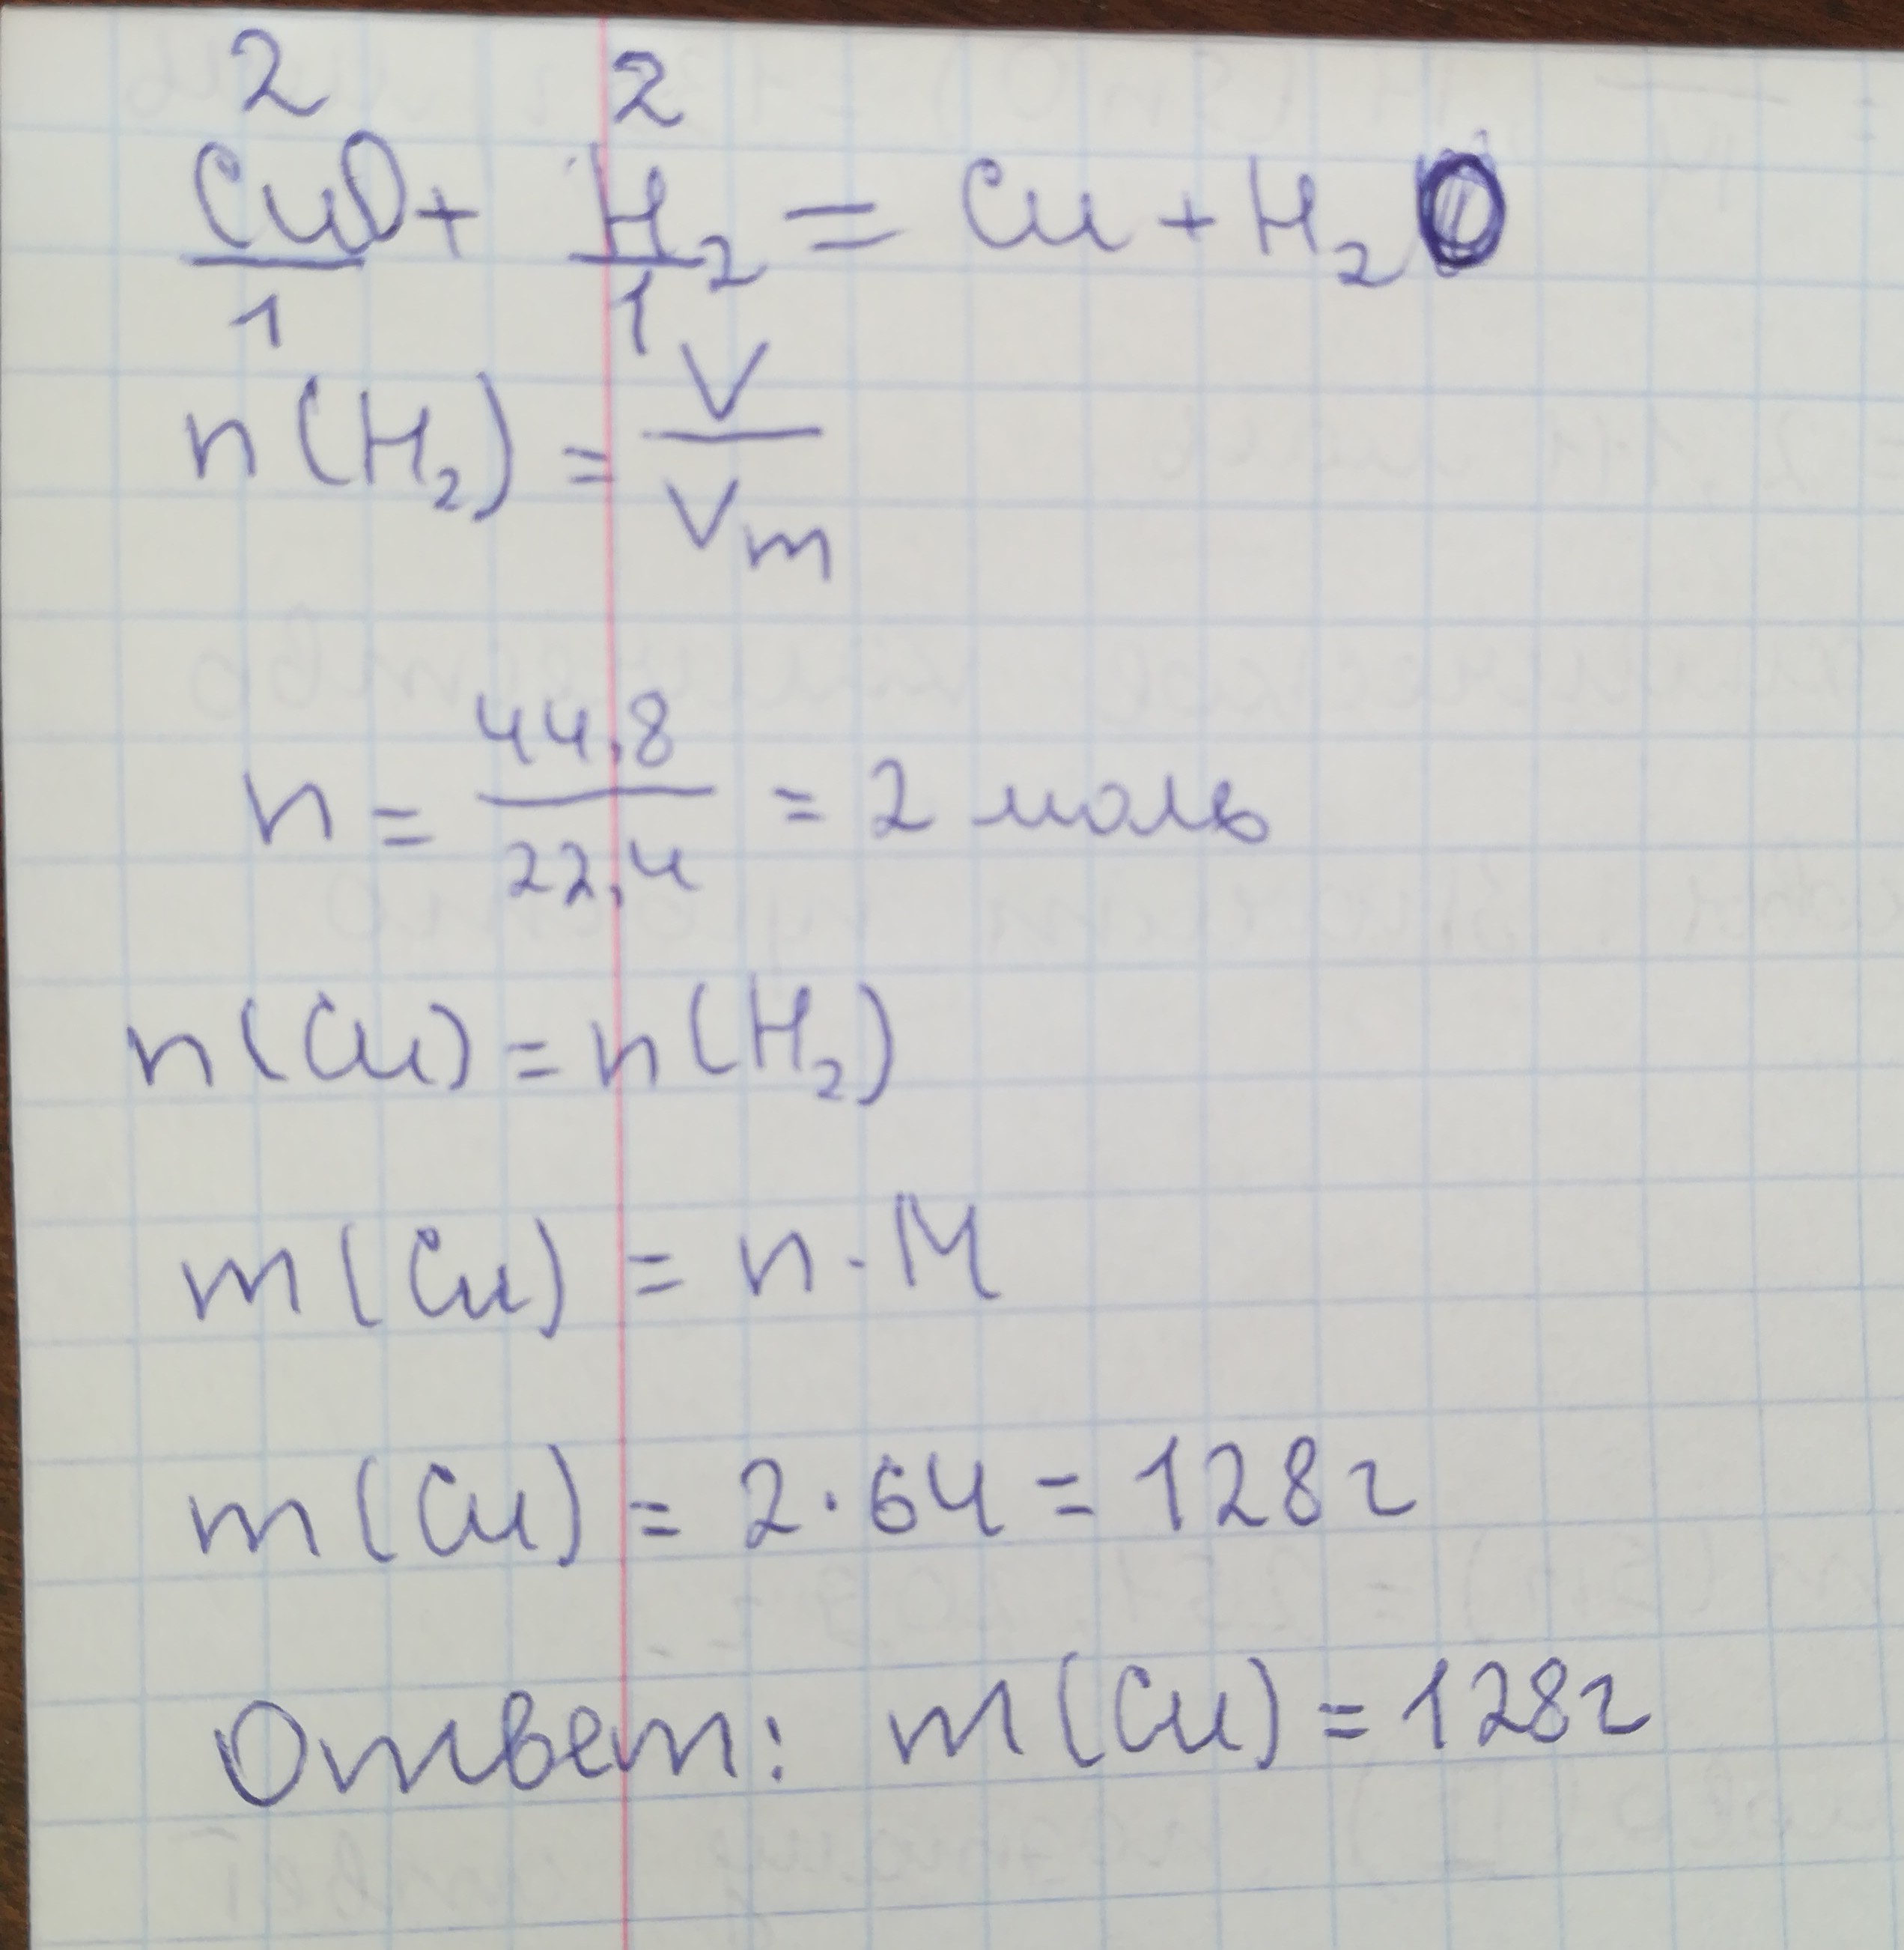 2 2
CuO + H₂ = Cu + H₂O
1 1
n(H₂) = V/Vm
n = 44,8/22,4 = 2 моль
n(Cu) = n(H₂)
m(Cu) = n · M
m(Cu) = 2 · 64 = 128 г
Ответ: m(Cu) = 128 г